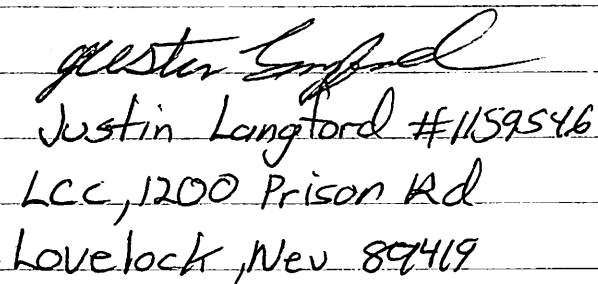 Justin Langford
Justin Langford #1159546
LCC, 1200 Prison Rd
Lovelock, Nev 89419